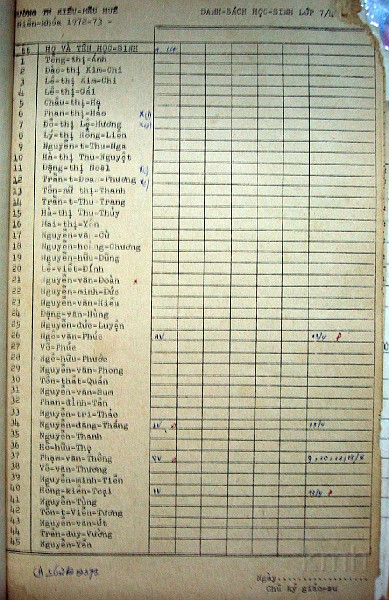 TRƯỜNG TH KIỂU-MẪU HUẾ
Niên-khóa 1972-73
DANH-SÁCH HỌC-SINH LỚP 7/4
Stt HỌ VÀ TÊN HỌC-SINH
1 Tống=thị=Ánh
2 Đào=thị Kim=Chi
3 Lê=thị Kim=Chi
4 Lê=thị=Gái
5 Châu=thị=Hạ
6 Phan=thị=Hảo
7 Đỗ=thị Lệ=Hương
8 Lý=thị Hồng=Liên
9 Nguyễn=t=Thu=Nga
10 Hà=thị Thu=Nguyệt
11 Đặng=thị Noël
12 Trần=t=Đoan=Phương
13 Tôn=nữ thị=Thanh
14 Trần=t=Thu=Trang
15 Hà=thị Thu=Thủy
16 Mai=thị=Yến
17 Nguyễn=văn=Cừ
18 Nguyễn=hoàng=Chương
19 Nguyễn=hữu=Dũng
20 Lê=viết=Đính
21 Nguyễn=văn=Đoàn x
22 Nguyễn=minh=Đức
23 Nguyễn=văn=Hiếu
24 Đặng=văn=Hùng
25 Nguyễn=đức=Luyện
26 Ngô=văn=Phúc 1V 19/4 P
27 Võ=Phúc
28 Ngô=hữu=Phước
29 Nguyễn=văn=Phong
30 Tôn=thất=Quán
31 Nguyễn=văn=Sum
32 Phan=đình=Tân
33 Nguyễn=tri=Thảo
34 Nguyễn=đăng=Thắng 1V
35 Nguyễn=Thanh
36 Hồ=hữu=Thọ
37 Phạm=văn=Thông
38 Võ=văn=Thương
39 Nguyễn=minh=Tiến
40 Hồng=kiên=Toại 1V
41 Nguyễn=Tùng
42 Tôn=t=Viễn=Tường
43 Nguyễn=văn=Út
44 Trần=duy=Vương
45 Nguyễn=Yên
Ngày
Chữ ký giáo=sư
kmh